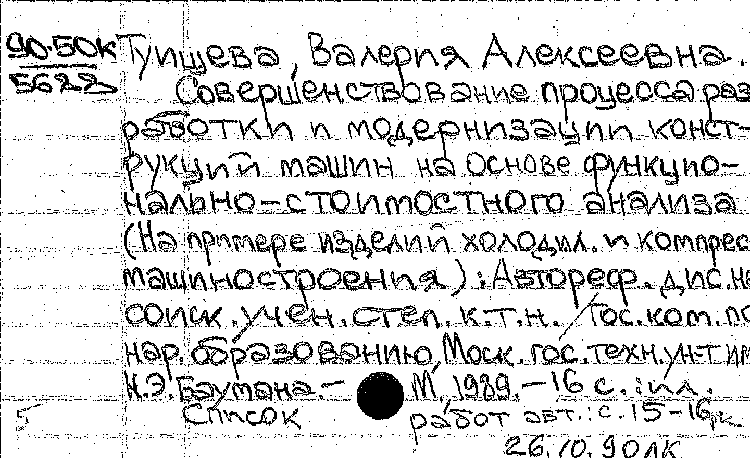 90-50к Туищева, Валерия Алексеевна.
5622 Совершенствование процесса раз
работки и модернизации конст-
рукций машин на основе функцио-
нально-стоимостного анализа
(На примере изделий холодил. и компрес
машиностроения): Автореф. дис. на
соиск. учен. степ. к.т.н. / Гос. ком. по
нар. образованию, Моск. гос. техн. ун-т им
Н.Э. Баумана. – М., 1989. – 16 с.: ил.
5 Список работ авт.: с. 15-16
26.10.90